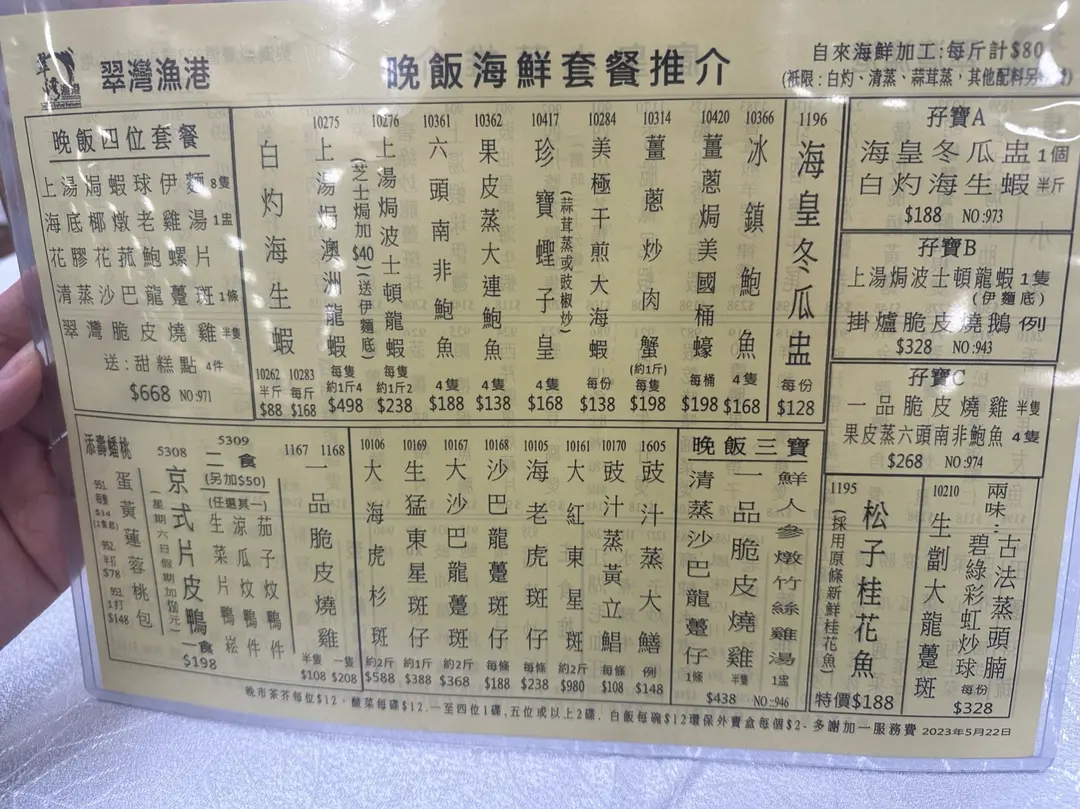 翠灣漁港
晚飯海鮮套餐推介
自來海鮮加工:每斤計$80
(祇限:白灼、清蒸、蒜茸蒸,其他配料另
晚飯四位套餐
上湯焗蝦球伊麵 8隻
海底椰燉老雞湯 1盅
花膠花菰鮑螺片
清蒸沙巴龍躉斑 1條
翠灣脆皮燒雞 半隻
送:甜糕點 4件
$668 NO:971
白灼海生蝦
10262 半斤 $88
10283 每斤 $168
10275 上湯焗澳洲龍蝦 每隻 約1斤4 $498
(芝士焗加$40)(送伊麵底)
10276 上湯焗波士頓龍蝦 每隻 約1斤2 $238
10361 六頭南非鮑魚 4隻 $188
10362 果皮蒸大連鮑魚 4隻 $138
10417 珍寶蟶子皇 4隻 $168
(蒜茸蒸或豉椒炒)
10284 美極干煎大海蝦 每份 $138
10314 薑蔥炒肉蟹 (約1斤) 每隻 $198
10420 薑蔥焗美國桶蠔 每桶 $198
10366 冰鎮鮑魚 4隻 $168
1196 海皇冬瓜盅 每份 $128
孖寶A
海皇冬瓜盅 1個
白灼海生蝦 半斤
$188 NO:973
孖寶B
上湯焗波士頓龍蝦 1隻
(伊麵底)
掛爐脆皮燒鵝 例
$328 NO:943
孖寶C
一品脆皮燒雞 半隻
果皮蒸六頭南非鮑魚 4隻
$268 NO:974
添壽蟠桃
蛋黃蓮蓉桃包
951. 每隻 $14
952. 半打 $78
953. 1打 $148
5308 京式片皮鴨 一食 $198
5309 二食
(另加$50)
(任選其一)
生菜片鴨崧
涼瓜炆鴨件
茄子炆鴨件
1167 1168
一品脆皮燒雞
半隻 $108
一隻 $208
10106 大海虎杉斑 約2斤 $588
10169 生猛東星斑仔 約1斤 $388
10167 大沙巴龍躉斑 約2斤 $368
10168 沙巴龍躉斑仔 每條 $188
10105 海老虎斑仔 每條 $238
10161 大紅東星斑 約2斤 $980
10170 豉汁蒸黃立鯧 每條 $108
1605 豉汁蒸大鱔 例 $148
晚飯三寶
清蒸沙巴龍躉仔 1條
一品脆皮燒雞 半隻
鮮人參燉竹絲雞湯 1盅
$438 NO:946
1195 松子桂花魚
(採用原條新鮮桂花魚)
特價$188
10210 生劏大龍躉斑
兩味:古法蒸頭腩
碧綠彩虹炒球
每份 $328
晚市茶芥每位$12, 酸菜每碟$12, 一至四位1碟, 五位或以上2碟. 白飯每碗$12環保外賣盒每個$2-多謝加一服務費 2023年5月22日